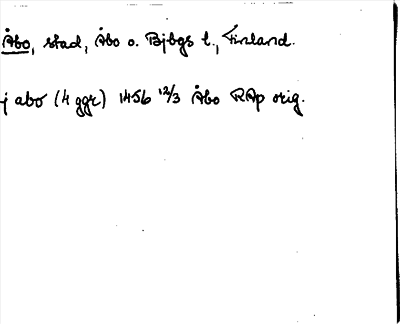 Åbo, stad, Åbo o. Bjbgs l., Finland.
j abo (4 ggr) 1456 12/3 Åbo RAp orig.